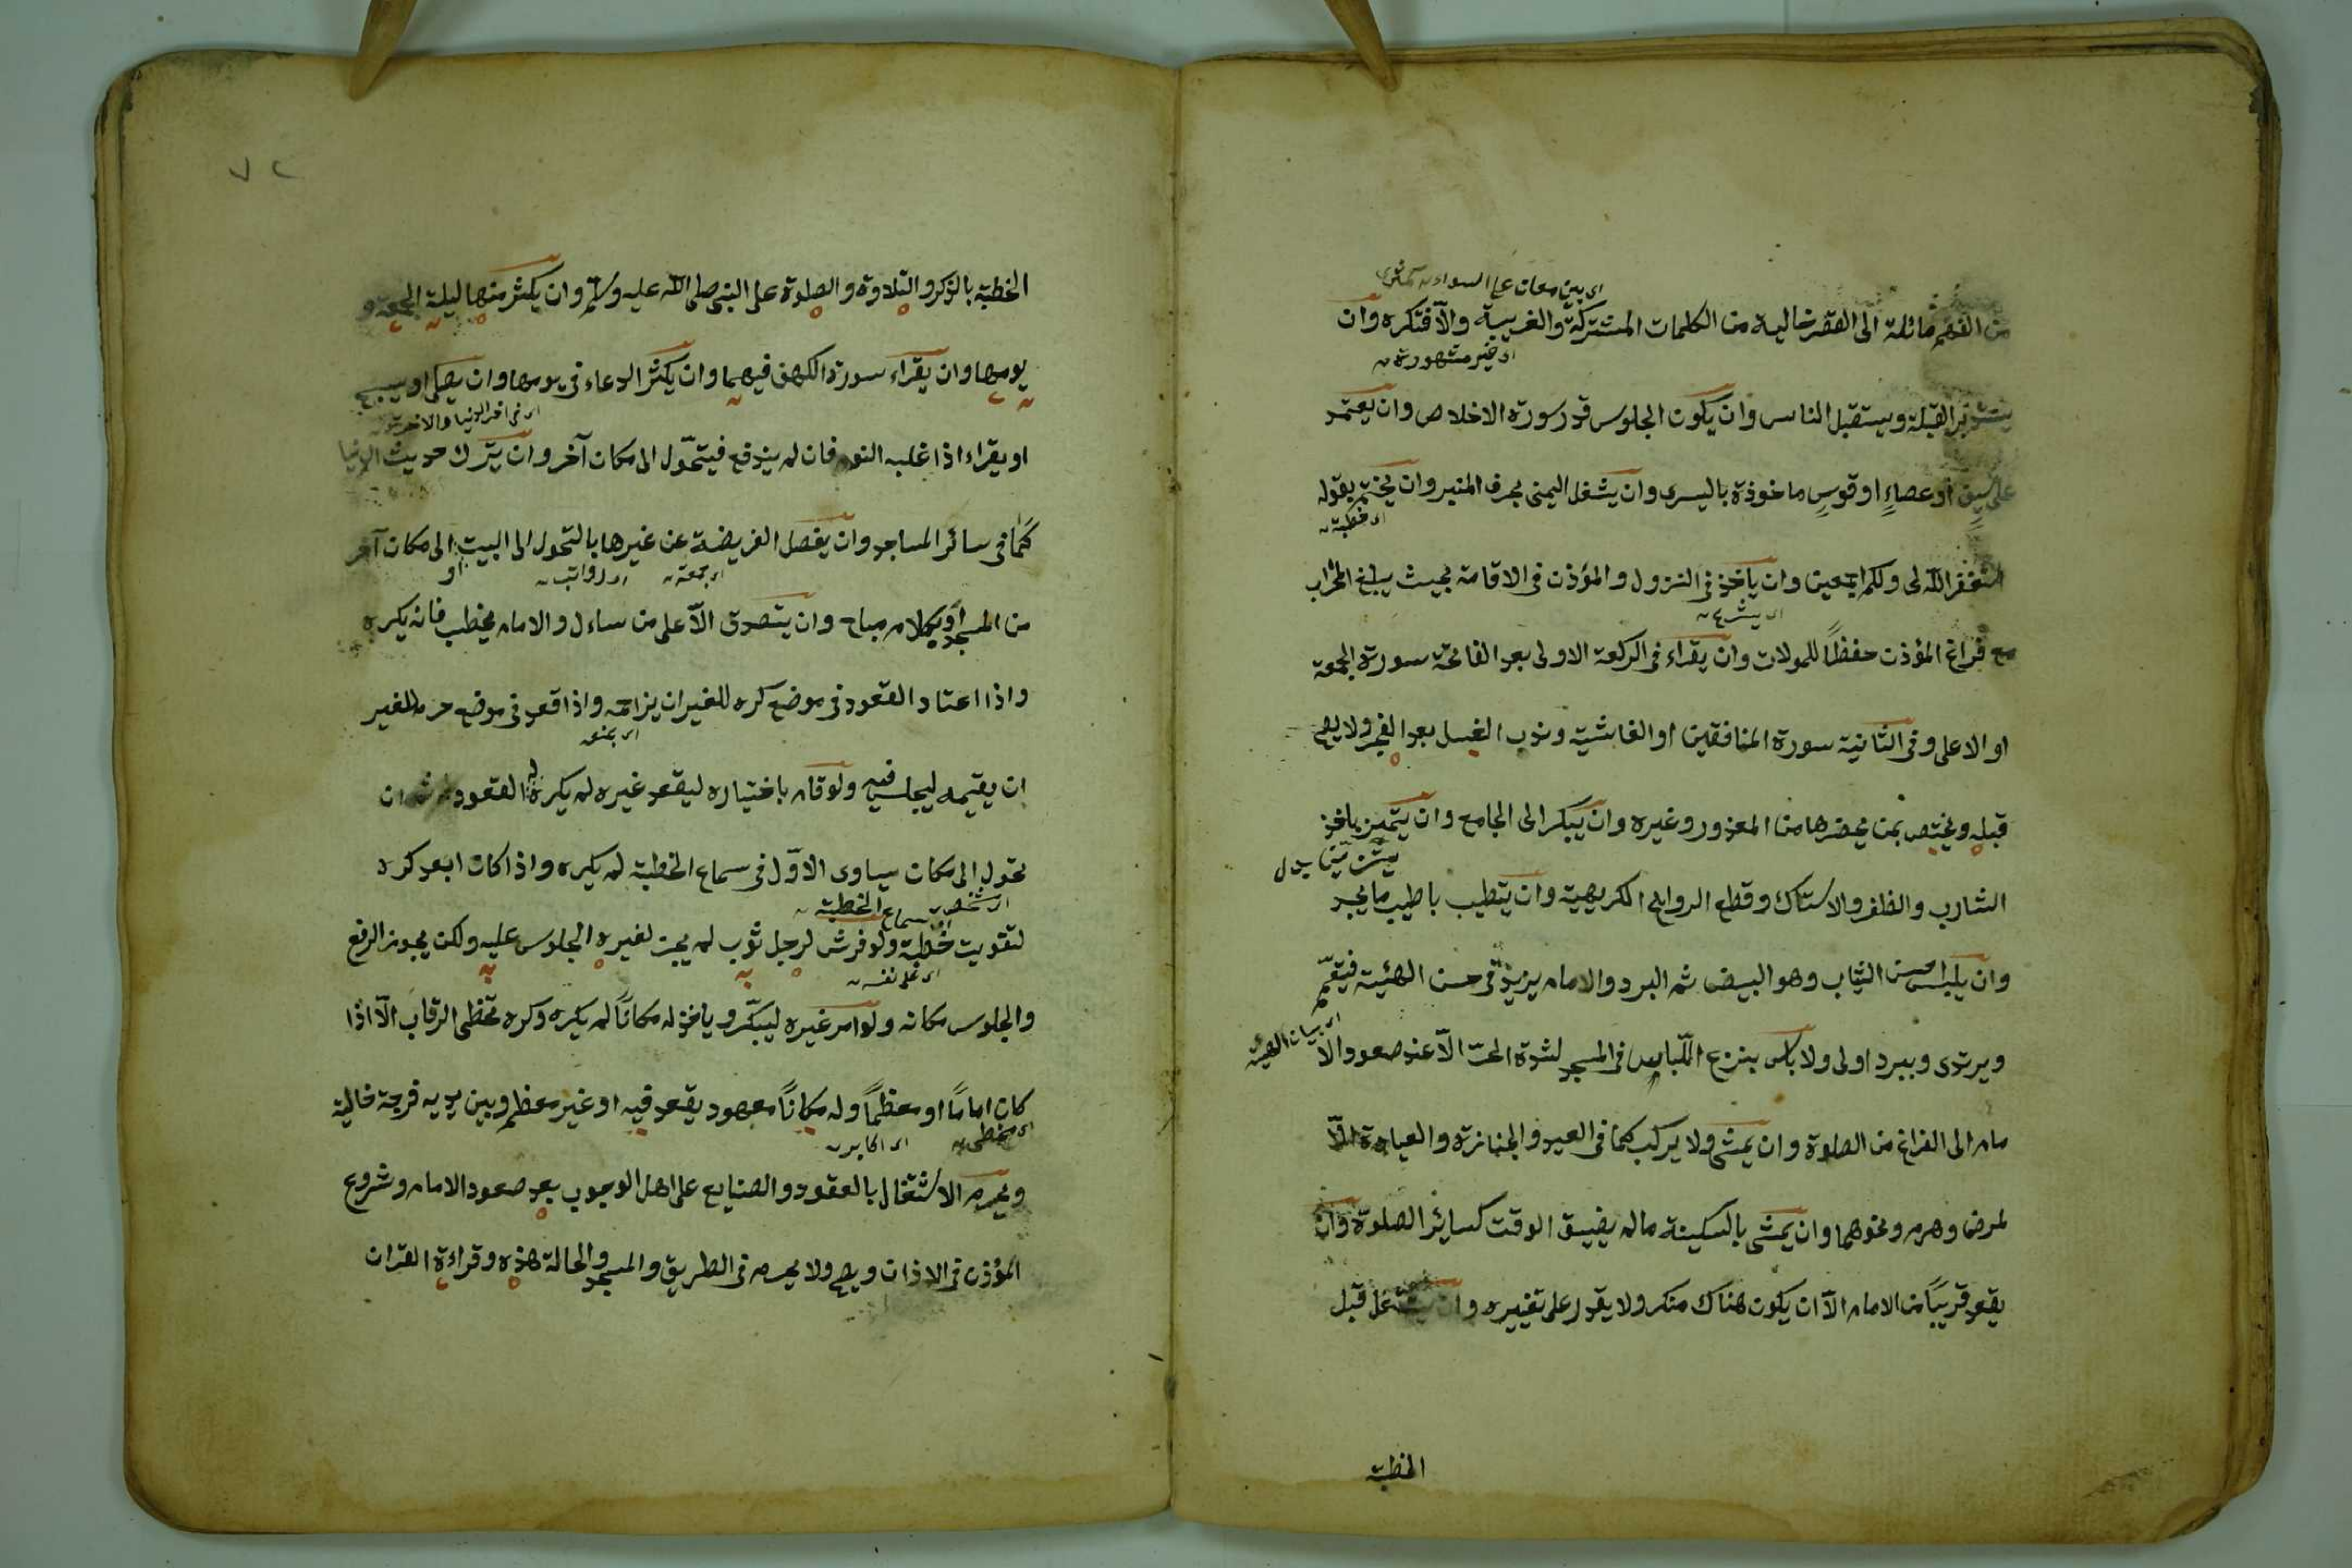 اى بين معان على السواء
من الفهم مائلة الى القصر خالية من الكلمات المشتركة والغريبة والّا فتكره وان
او غير مشهورة
يستدبر القبلة ويستقبل الناس وان يكون الجلوس قدر سورة الاخلاص وان يعتمد
على سيفٍ او عصاءٍ او قوسٍ ماخوذة باليسرى وان يشغل اليمنى بحرف المنبر وان يختم بقوله
اى خطبة
استغفر الله لى ولكم اجمعين وان ياخذ فى النزول والمؤذن فى الاقامة بحيث يبلغ المحراب
اى يشرع
مع فراغ المؤذن حفظًا للمولات وان يقراء فى الركعة الاولى بعد الفاتحة سورة الجمعة
او الاعلى وفى الثانية سورة المنافقين او الغاشية وندب الغسل بعد الفجر ولا يصح
قبله ويختص بمن يحضرها من المعذور وغيره وان يبكر الى الجامع وان يتميز باخذ
الشارب والظفر والاستاك وقطع الروايح الكريهية وان يتطيب باطيب ما يجد
وان يلبس احسن الثياب وهو البيض ثم البرد والامام يزيد فى حسن الهيئة فيتعمّم
اى بيان الهيئة
ويرتدى وببرد اولى ولا باس بنزع اللّباس فى المسجد لشدة الحرّ الّا عند صعود الا
مام الى الفراغ من الصلوة وان يمشى ولا يركب كما فى العيد والجنازة والعيادة الّا
لمرض وهرم ونحوهما وان يمشى بالسكينة ما لم يضيق الوقت كسائر الصلوة وان
يقعد قريبًا من الامام الّا ان يكون هناك منكر ولا يقدر على تغييره وان يشتغل قبل
الخطبة
٧٢
الخطبة بالذكر والتلاوة والصلوة على النبى صلى الله عليه وسلم وان يكثر منها ليلة الجمعة و
يومها وان يقراء سورة الكهف فيهما وان يكثر الدعاء فى يومها وان يصلى او يسبح
اى فى امر الدنيا والاخرة
او يقراء اذا غلبه النوم فان لم يندفع فيتحوّل الى مكان آخر وان يترك حديث الدنيا
كما فى سائر المساجد وان يفصل الفريضة عن غيرها بالتحول الى البيت او الى مكان آخر
اى جمعة اى رواتب
من المسجد او بكلام مباح وان يتصدق الّا على من ساءل والامام يخطب فانه يكره
واذا اعتاد القعود فى موضع كره للغير ان يزاحمه واذا قعد فى موضع حرم للغير
اى يمنع
ان يقيمه ليجلس فيه ولو قام باختياره ليقعد غيره لم يكره له القعود ثم ان
تحول الى مكان يساوى الاوّل فى سماع الخطبة لم يكره واذا كان ابعد كره
اى شخص سماع الخطبة
لتفويت خطبة ولو فرش لرجل ثوب لم يجز لغيره الجلوس عليه ولكن يجوز الرفع
اى على نفسه
والجلوس مكانه ولو امر غيره ليبكّر وياخذ له مكانًا لم يكره وكره تخطى الرقاب الّا اذا
كان امامًا او معظمًا وله مكانًا معهود يقعد فيه او غير معظم وبين يديه فرجة خالية
اى متخطى اى اكابر
ويحرم الاشتغال بالعقود والصنايع على اهل الوجوب بعد صعود الامام وشروع
المؤذن فى الاذان ويصح ولا يحرم فى الطريق والمسجد والحالة هذه وقراءة القران